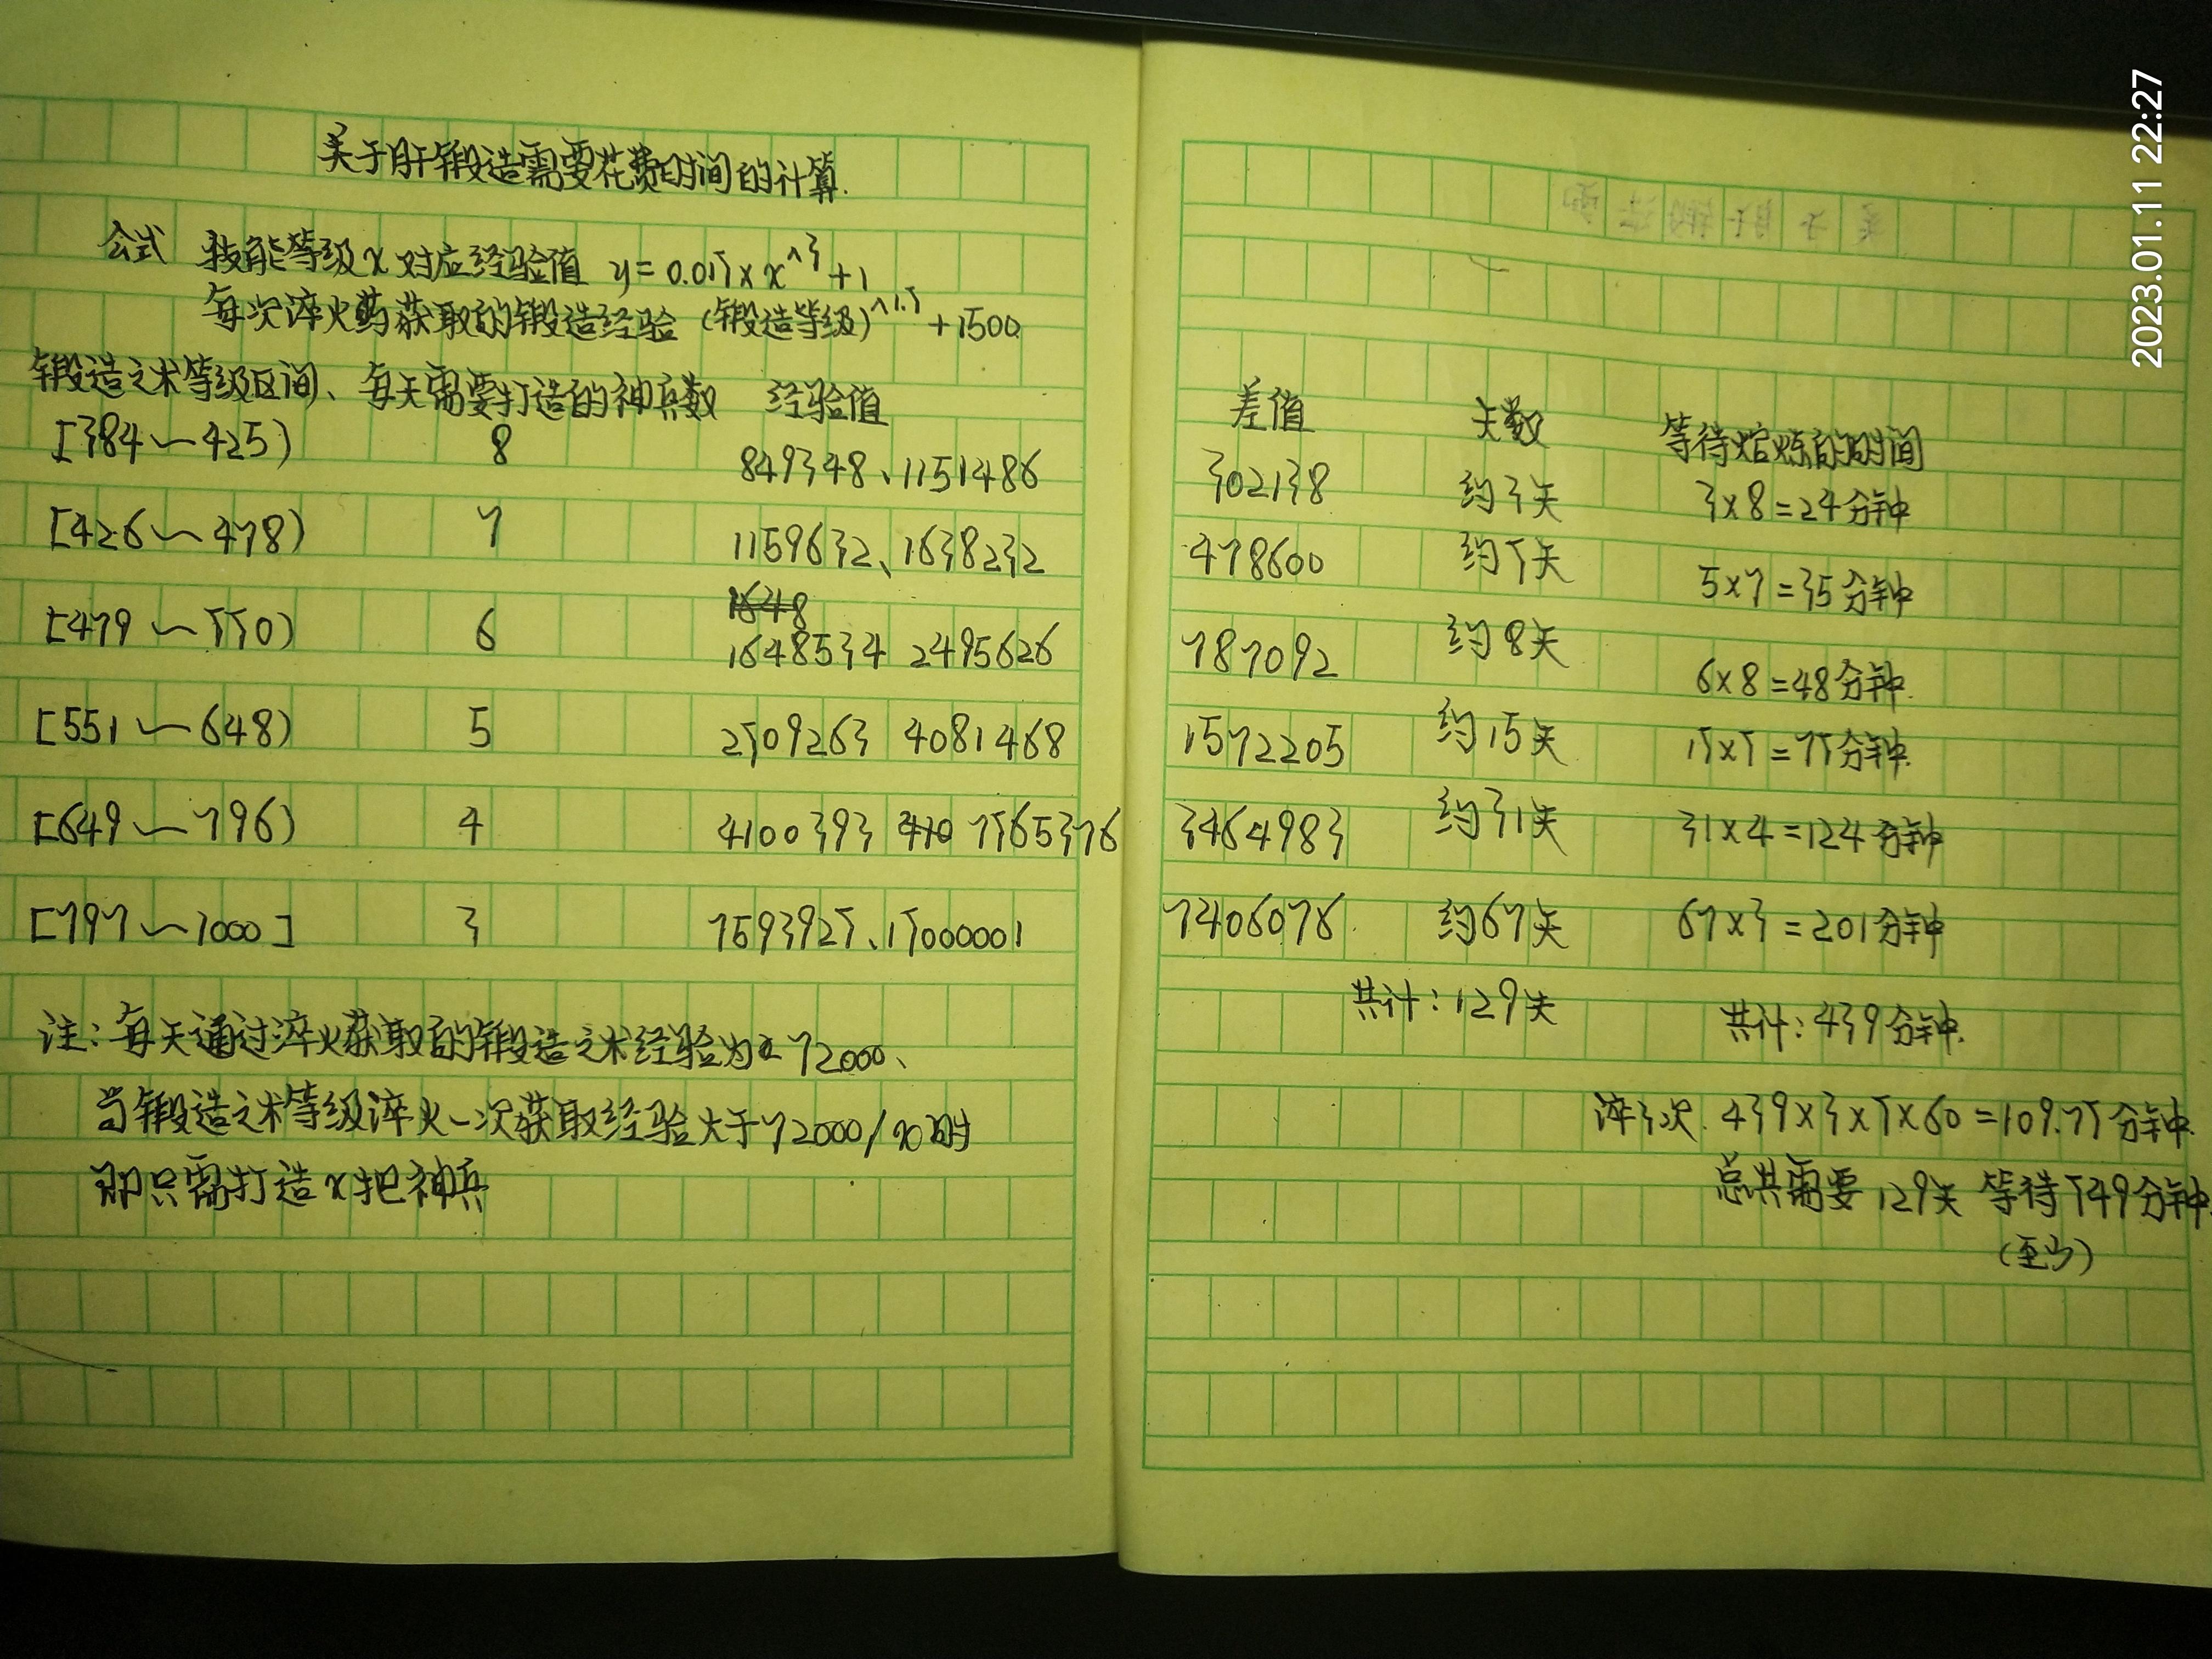 关于肝锻造需要花费时间的计算.
公式 技能等级x对应经验值 y=0.015×x^3+1
每次淬火药获取的锻造经验 (锻造等级)^1.5+1500
锻造之术等级区间、每天需要打造的神兵数 经验值
[384~425) 8 849348、1151486
[426~478) 7 1159632、1638232
[479~550) 6 1648534 2495626
[551~648) 5 2509263 4081468
[649~796) 4 4100393 7565376
[797~1000] 3 7593925、15000001
注:每天通过淬火获取的锻造之术经验为72000、
当锻造之术等级淬火一次获取经验大于72000/x时
即只需打造x把神兵
差值 天数 等待熔炼的时间
302138 约3天 3×8=24分钟
478600 约5天 5×7=35分钟
787092 约8天 6×8=48分钟.
1572205 约15天 15×5=75分钟.
3464983 约31天 31×4=124分钟
7406076. 约67天 67×3=201分钟
共计:129天 共计:439分钟.
淬3次. 439×3×5×60=109.75分钟.
总共需要129天 等待549分钟.
(至少)
2023.01.11 22:27